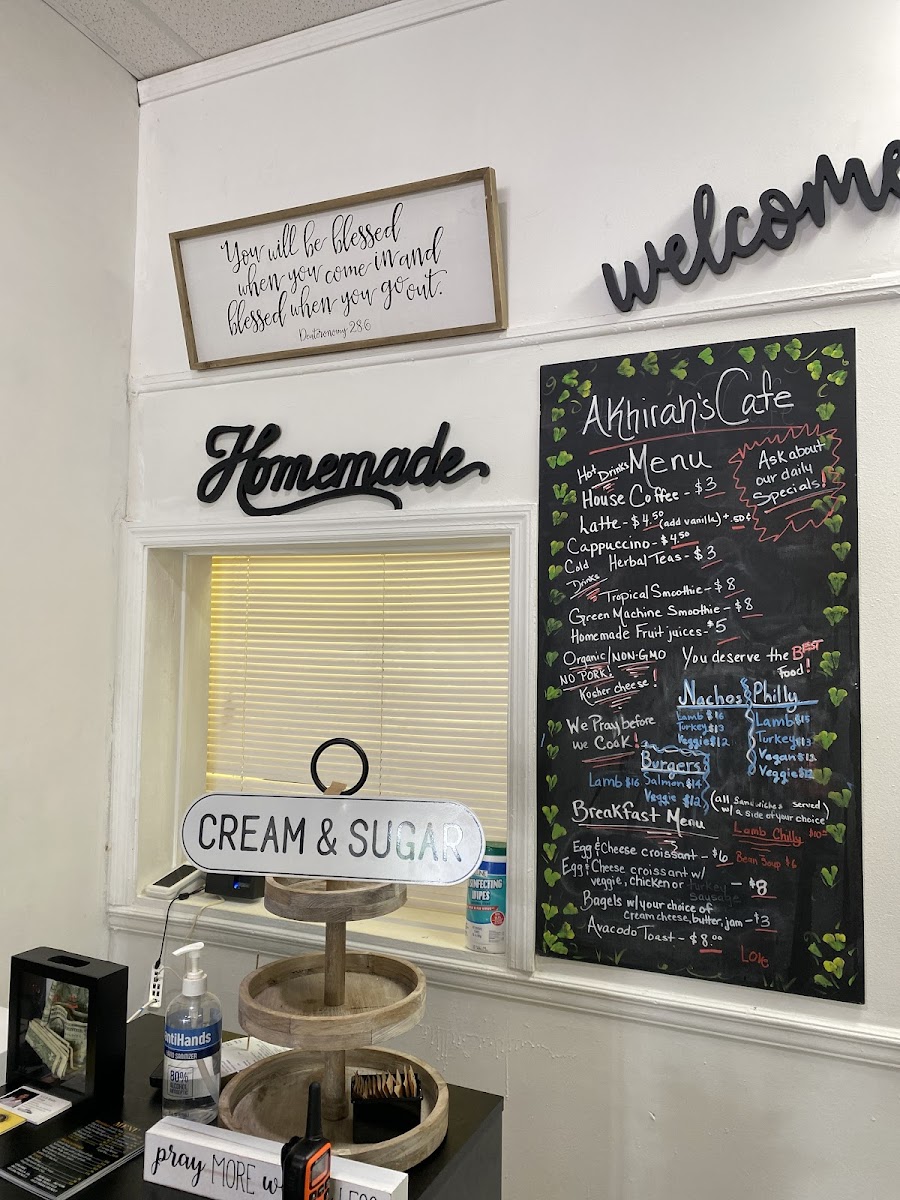 You will be blessed
when you come in and
blessed when you go out.
Deuteronomy 28:6
welcome
Homemade
AKhirah's Cafe
Hot Drinks
Menu
Ask about
our daily
Specials!
House Coffee - $3
Latte - $4.50 (add vanilla) + .50¢
Cappuccino - $4.50
Cold
Drinks
Herbal Teas - $3
Tropical Smoothie - $8
Green Machine Smoothie - $8
Homemade Fruit juices - $5
Organic/NON-GMO
NO PORK!
Kosher cheese!
You deserve the BEST
Food!
We Pray before
we Cook!
Nachos
Lamb $16
Turkey $13
Veggie $12
Philly
Lamb $15
Turkey $13
Vegan $13
Veggie $12
Burgers
Lamb $16 Salmon $14
Veggie $12
(all sandwiches served
w/ a side of your choice)
Breakfast Menu
Lamb Chilly $10
Bean Soup $6
Egg & Cheese croissant - $6
Egg & Cheese croissant w/
veggie, chicken or turkey
Sausage - $8
Bagels w/ your choice of
cream cheese, butter, jam - $3
Avacado Toast - $8.00
Love
CREAM & SUGAR
WIPES
AntiHands
80%
ALCOHOL
MENU
pray MORE